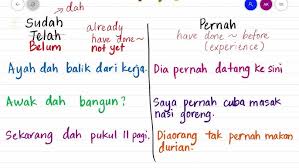 → dah
Sudah
Telah
Belum
already
have done ~
not yet
Pernah
have done ~ before
(experience)
Ayah dah balik dari kerja.
Awak dah bangun?
Sekarang dah pukul 11 pagi.
Dia pernah datang ke sini
Saya pernah cuba masak
nasi goreng.
Diaorang tak pernah makan
durian.